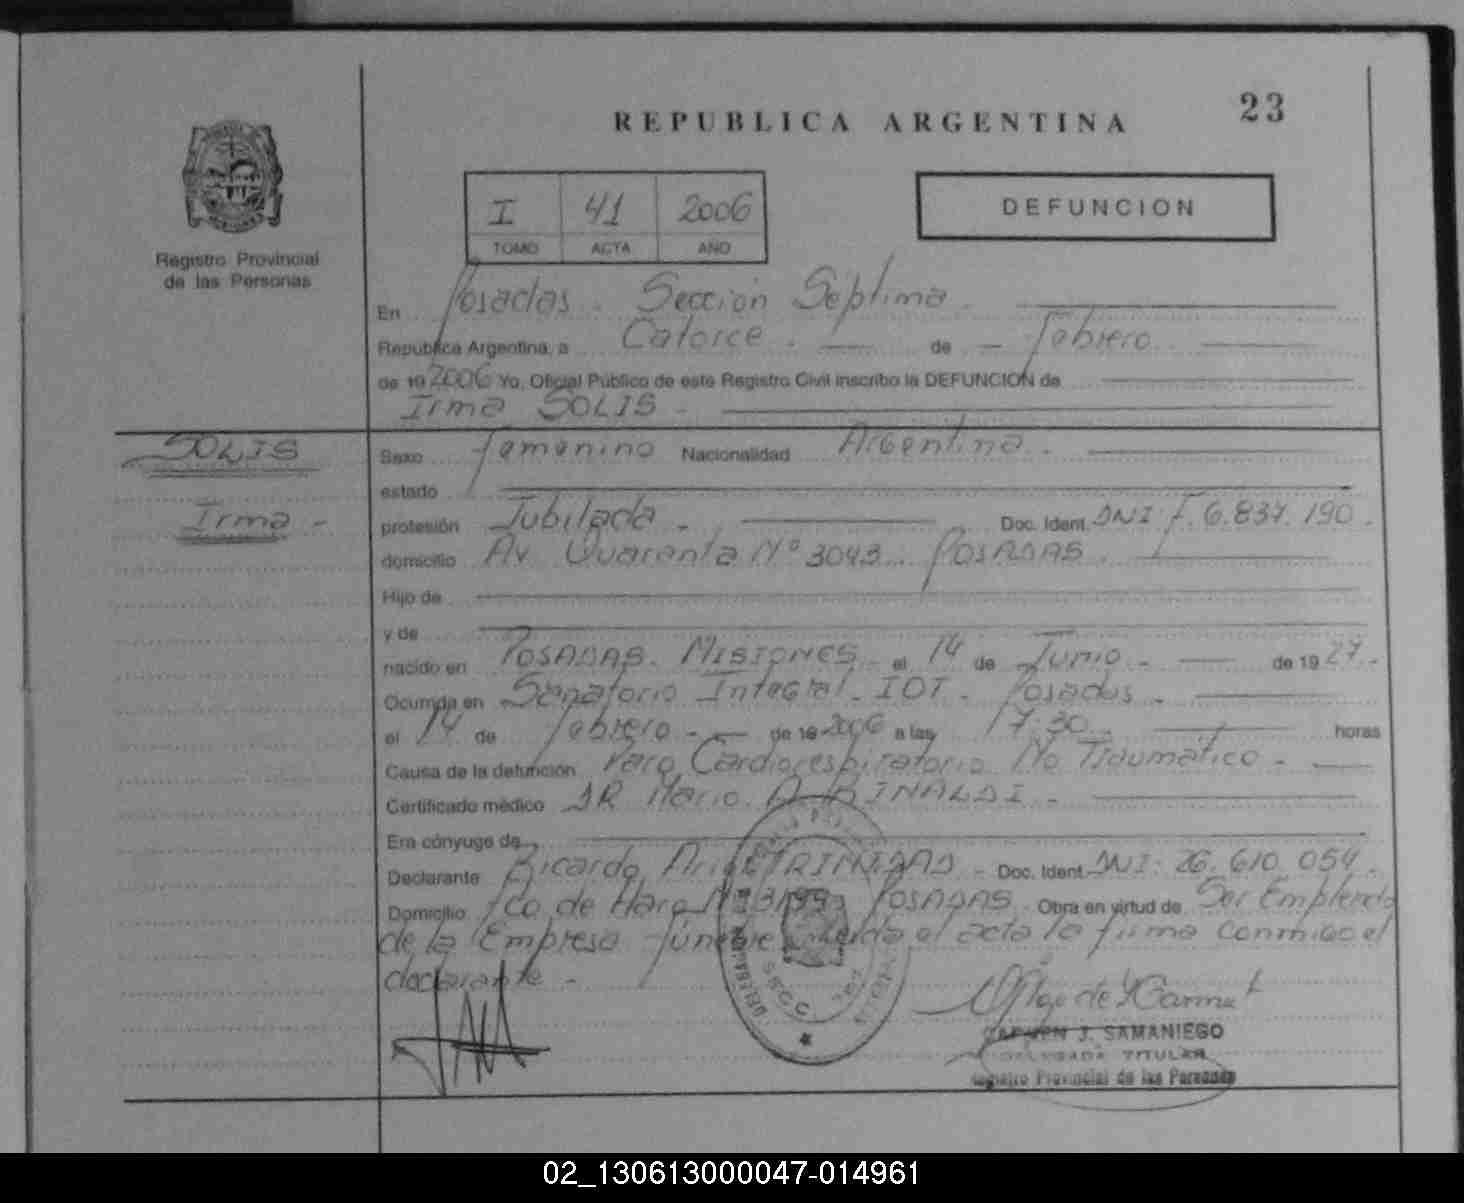 REPUBLICA ARGENTINA
23
Registro Provincial
de las Personas
I 41 2006
TOMO ACTA AÑO
DEFUNCION
En Posadas - Sección Séptima -
República Argentina, a Catorce - de - Febrero
de 19 2006 Yo, Oficial Público de este Registro Civil inscribo la DEFUNCION de
Irma SOLIS -
SOLIS
Irma -
Sexo Femenino Nacionalidad Argentina -
estado
profesión Jubilada - Doc. Ident. DNI F. 6.837.190 -
domicilio Av. Quarenta Nº 3043 - POSADAS -
Hijo de
y de
nacido en POSADAS - MISIONES - el 14 de Junio - de 19 27 -
Ocurrida en Sanatorio Integral - IOT - Posadas -
el 14 de Febrero - de 19 2006 a las 17:30 horas
Causa de la defunción Paro Cardiorespiratorio No Traumático -
Certificado médico DR Mario A. RINALDI -
Era cónyuge de
Declarante Ricardo Ariel TRINIDAD - Doc. Ident. DNI: 26.610.054 -
Domicilio Fco de Haro Nº 3199 POSADAS - Obra en virtud de Ser Empleado
de la Empresa Fúnebre leída el acta la firma conmigo el
declarante -
CARMEN J. SAMANIEGO
DELEGADA TITULAR
Registro Provincial de las Personas
02_130613000047-014961